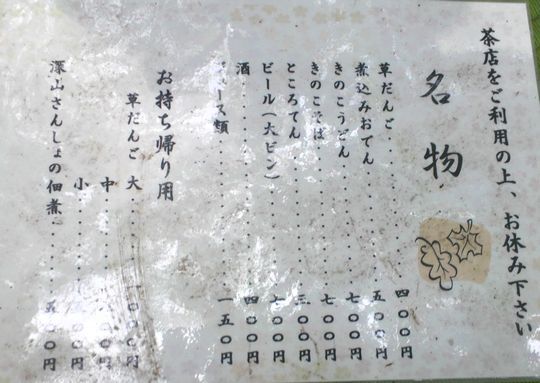 茶店をご利用の上、お休み下さい
名物
草だんご・・・・・・・・四〇〇円
煮込みおでん・・・・・・・・五〇〇円
きのこうどん・・・・・・・・七〇〇円
きのこそば・・・・・・・・七〇〇円
ところてん・・・・・・・・三〇〇円
ビール(大ビン)・・・・・・・・七〇〇円
酒・・・・・・・・四〇〇円
ース類・・・・・・・・一五〇円
お持ち帰り用
草だんご 大・・・・・・一〇〇〇円
中・・・・・・〇〇円
小・・・・・・〇〇円
深山さんしょの佃煮・・・・・・五〇〇円